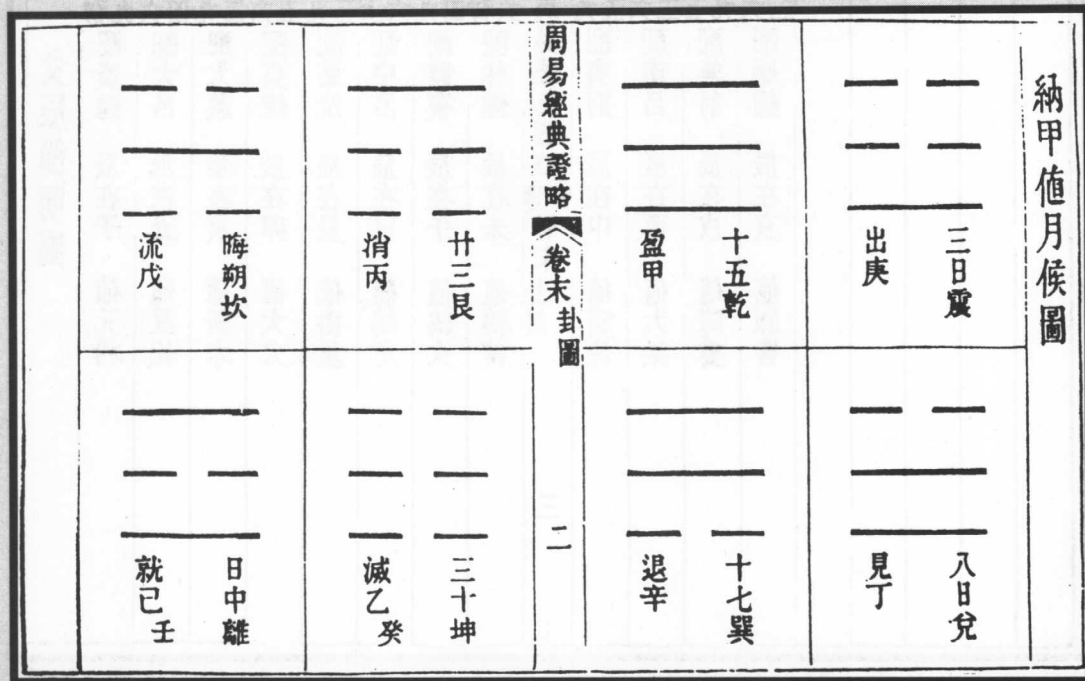 納甲值月候圖
三日震
出庚
八日兌
見丁
十五乾
盈甲
十七巽
退辛
周易經典證略 卷末 卦圖 二
廿三艮
消丙
三十坤
滅乙癸
晦朔坎
流戊
日中離
就己壬